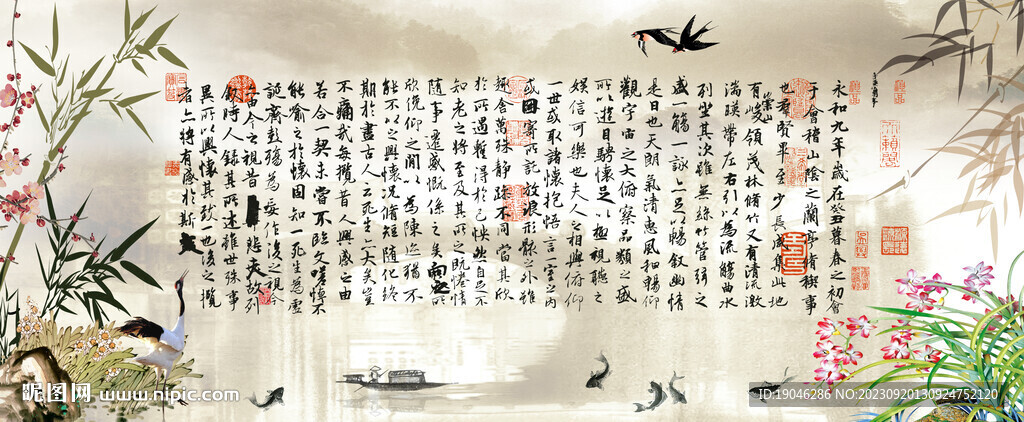 永和九年歲在癸丑暮春之初會
于會稽山陰之蘭亭脩禊事
也羣賢畢至少長咸集此地
有崇山峻領茂林脩竹又有清流激
湍暎帶左右引以為流觴曲水
列坐其次雖無絲竹管弦之
盛一觴一詠亦足以暢敘幽情
是日也天朗氣清惠風和暢仰
觀宇宙之大俯察品類之盛
所以遊目騁懷足以極視聽之
娛信可樂也夫人之相與俯仰
一世或取諸懷抱悟言一室之內
或因寄所託放浪形骸之外雖
趣舍萬殊靜躁不同當其欣
於所遇蹔得於己怏然自足不
知老之將至及其所之既惓情
隨事遷感慨係之矣向之所
欣俛仰之閒以為陳迹猶不
能不以之興懷況脩短隨化終
期於盡古人云死生亦大矣豈
不痛哉每攬昔人興感之由
若合一契未嘗不臨文嗟悼不
能喻之於懷固知一死生為虛
誕齊彭殤為妄作後之視今
亦由今之視昔悲夫故列
敘時人錄其所述雖世殊事
異所以興懷其致一也後之攬
者亦將有感於斯
昵图网 www.nipic.com
ID:19046286 NO:20230920130924752120